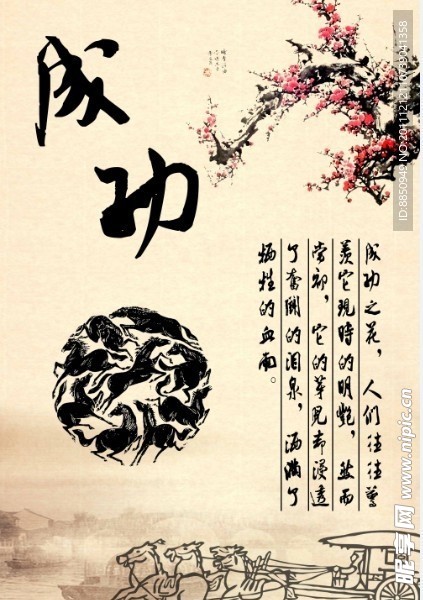 成功
成功之花，人们往往惊
羡它现时的明艳，然而
当初，它的芽儿却浸透
了奋斗的泪泉，洒满了
牺牲的血雨。
昵享网 www.nipic.cn